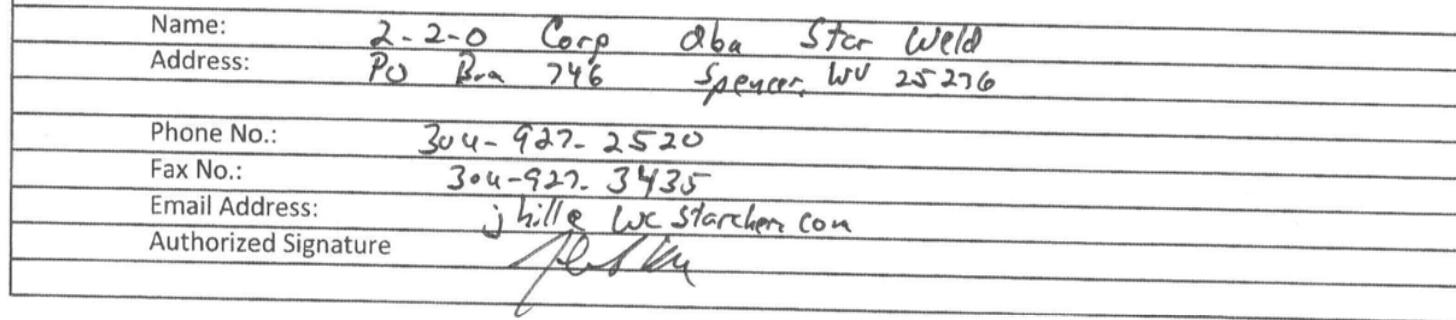 Name: 2-2-0 Corp dba Star Weld
Address: PO Box 746 Spencer, WV 25276
Phone No.: 304-927-2520
Fax No.: 304-927-3435
Email Address: jhill@wcstarcher.com
Authorized Signature